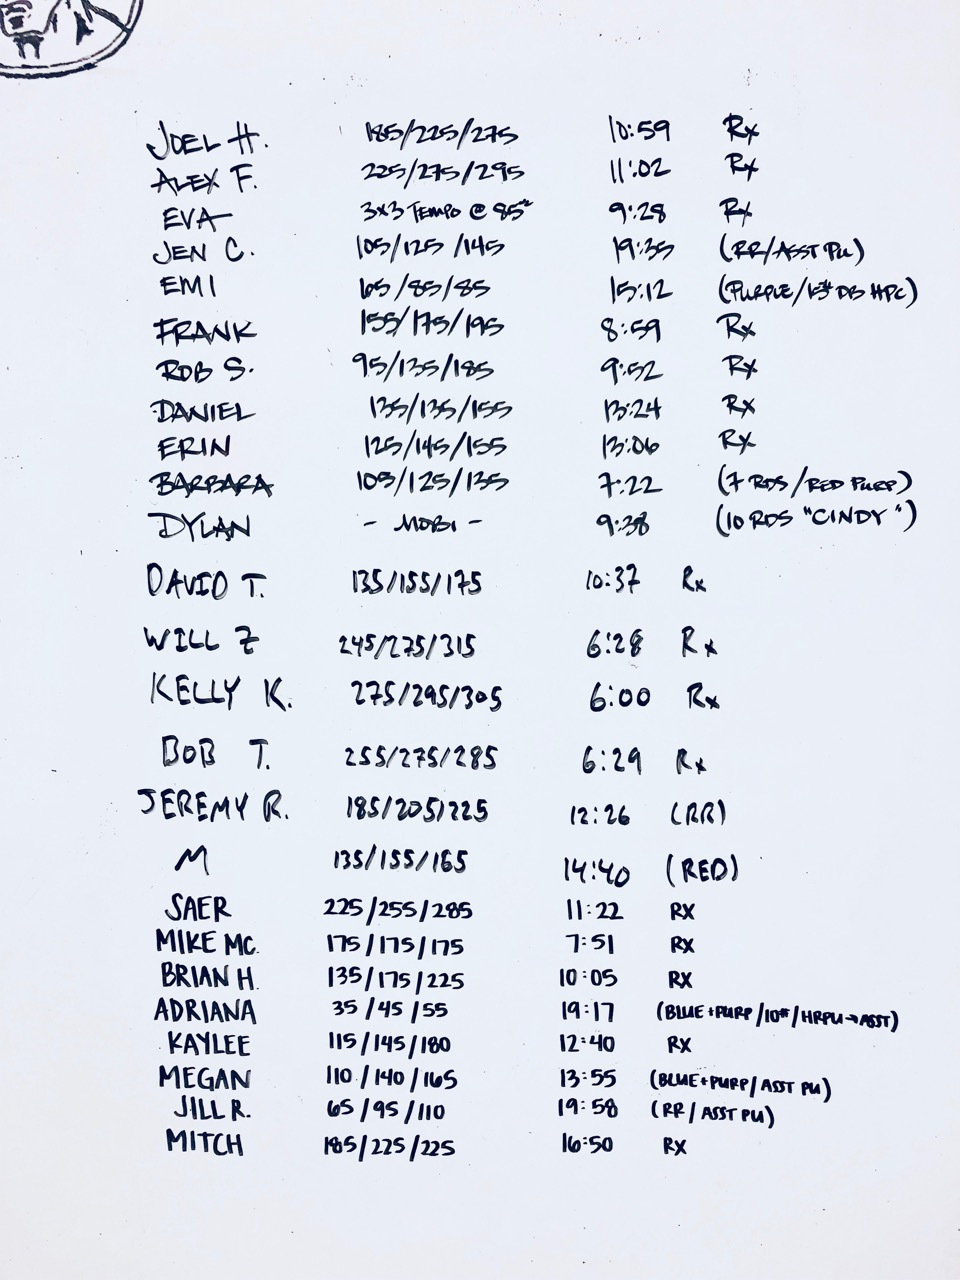 JOEL H. 185/225/275 10:59 Rx
ALEX F. 225/275/295 11:02 Rx
EVA 3x3 TEMPO @ 85# 9:28 Rx
JEN C. 105/125/145 19:35 (RR/ASST PU)
EMI 65/85/85 15:12 (PURPLE/15# DB HPC)
FRANK 155/175/195 8:59 Rx
ROB S. 95/135/185 9:52 Rx
DANIEL 135/135/155 13:24 Rx
ERIN 125/145/155 13:06 Rx
BARBARA 105/125/135 7:22 (7 RDS/RED PURP)
DYLAN - MOBI - 9:38 (10 RDS "CINDY")
DAVID T. 135/155/175 10:37 Rx
WILL Z 245/275/315 6:28 Rx
KELLY K. 275/295/305 6:00 Rx
BOB T. 255/275/285 6:29 Rx
JEREMY R. 185/205/225 12:26 (RR)
M 135/155/165 14:40 (RED)
SAER 225/255/285 11:22 RX
MIKE MC. 175/175/175 7:51 RX
BRIAN H. 135/175/225 10:05 RX
ADRIANA 35/45/55 19:17 (BLUE+PURP/10#/HRPU→ASST)
KAYLEE 115/145/180 12:40 RX
MEGAN 110/140/165 13:55 (BLUE+PURP/ASST PU)
JILL R. 65/95/110 19:58 (RR/ASST PU)
MITCH 185/225/225 16:50 RX